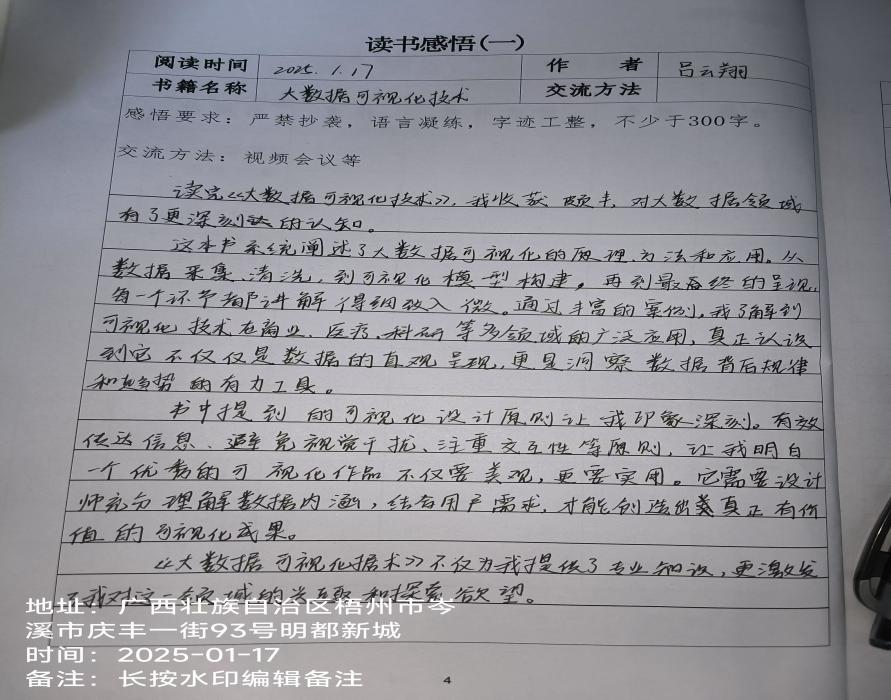 读书感悟(一)
阅读时间 2025.1.17 作者 吕云翔
书籍名称 大数据可视化技术 交流方法
感悟要求：严禁抄袭，语言凝练，字迹工整，不少于300字。
交流方法：视频会议等
读完《大数据可视化技术》，我收获颇丰，对大数据领域
有了更深刻的认知。
这本书系统阐述了大数据可视化的原理、方法和应用。从
数据采集、清洗，到可视化模型构建，再到最终的呈现，
每一个环节都讲解得细致入微。通过丰富的案例，我了解到
可视化技术在商业、医疗、科研等多领域的广泛应用，真正认识
到它不仅仅是数据的直观呈现，更是洞察数据背后规律
和趋势的有力工具。
书中提到的可视化设计原则让我印象深刻。有效
传达信息、避免视觉干扰、注重交互性等原则，让我明白
一个优秀的可视化作品不仅要美观，更要实用。它需要设计
师充分理解数据内涵，结合用户需求，才能创造出真正有价
值的可视化成果。
《大数据可视化据术》不仅为我提供了专业知识，更激发
了我对这一领域的兴趣和探索欲望。
地址：广西壮族自治区梧州市岑
溪市庆丰一街93号明都新城
时间：2025-01-17
备注：长按水印编辑备注
4